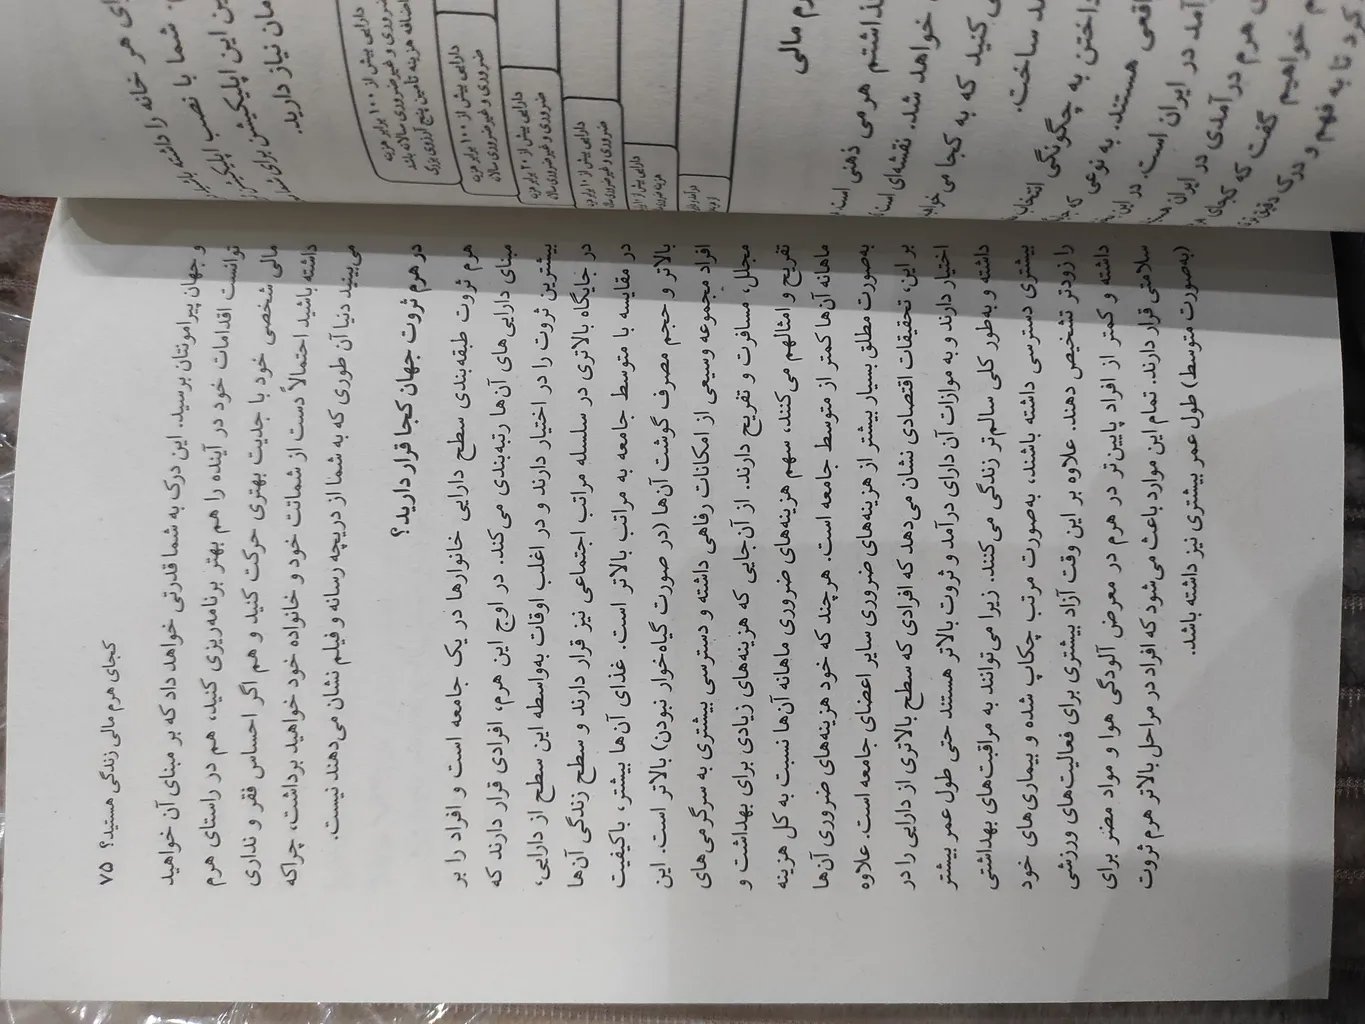 کجای هرم مالی زندگی هستید؟ ۷۵
و جهان پیرامونتان برسید. این درک به شما قدرتی خواهد داد که بر مبنای آن خواهید
توانست اقدامات خود در آینده را هم بهتر برنامه‌ریزی کنید، هم در راستای هرم
مالی شخصی خود با جدیت بهتری حرکت کنید و هم اگر احساس فقر و نداری
داشته باشید احتمالاً دست از شماتت خود و خانواده خود خواهید برداشت، چراکه
می‌بینید دنیا آن طوری که به شما از دریچه رسانه و فیلم نشان می‌دهند نیست.
در هرم ثروت جهان کجا قرار دارید؟
هرم ثروت طبقه‌بندی سطح دارایی خانوارها در یک جامعه است و افراد را بر
مبنای دارایی‌های آن‌ها رتبه‌بندی می‌کند. در اوج این هرم، افرادی قرار دارند که
بیشترین ثروت را در اختیار دارند و در اغلب اوقات به‌واسطه این سطح از دارایی،
در جایگاه بالاتری در سلسله مراتب اجتماعی نیز قرار دارند و سطح زندگی آن‌ها
در مقایسه با متوسط جامعه به مراتب بالاتر است. غذای آن‌ها بیشتر، باکیفیت
بالاتر و حجم مصرف گوشت آن‌ها (در صورت گیاه‌خوار نبودن) بالاتر است. این
افراد مجموعه وسیعی از امکانات رفاهی داشته و دسترسی بیشتری به سرگرمی‌های
مجلل، مسافرت و تفریح دارند. از آن‌جایی که هزینه‌های زیادی برای بهداشت و
تفریح و امثالهم می‌کنند، سهم هزینه‌های ضروری ماهانه آن‌ها نسبت به کل هزینه
ماهانه آن‌ها کمتر از متوسط جامعه است. هرچند که خود هزینه‌های ضروری آن‌ها
به‌صورت مطلق بسیار بیشتر از هزینه‌های ضروری سایر اعضای جامعه است. علاوه
بر این، تحقیقات اقتصادی نشان می‌دهد که افرادی که سطح بالاتری از دارایی را در
اختیار دارند و به موازات آن دارای درآمد و ثروت بالاتر هستند حتی طول عمر بیشتر
داشته و به‌طور کلی سالم‌تر زندگی می‌کنند. زیرا می‌توانند به مراقبت‌های بهداشتی
بیشتری دسترسی داشته باشند، به‌صورت مرتب چکاپ شده و بیماری‌های خود
را زودتر تشخیص دهند. علاوه بر این وقت آزاد بیشتری برای فعالیت‌های ورزشی
داشته و کمتر از افراد پایین‌تر در هرم در معرض آلودگی هوا و مواد مضر برای
سلامتی قرار دارند. تمام این موارد باعث می‌شود که افراد در مراحل بالاتر هرم ثروت
(به‌صورت متوسط) طول عمر بیشتری نیز داشته باشند.
هر خانه را داشته
شما با نصب
این اپلیکیشن برای
نیاز دارید.
دارایی بیش از ۱۰۰ برابر هزینه
ضروری و غیرضروری سالانه
اضافه هزینه تأمین پنج آرزوی بزرگ
دارایی بیش از ۱۰۰ برابر هزینه
ضروری و غیرضروری سالانه
دارایی بیش از ۲۰ برابر هزینه
ضروری و غیرضروری سالانه
دارایی بیش از ۱۰ برابر
ضروری و غیرضروری
دارایی بیش از
هزینه
مالی
هرمی ذهنی
خواهد شد. نقشه‌ای
کنید که به کجا می
ساخت.
به چگونگی
هستند. به نوعی که
در ایران است. در این
هرم درآمدی در ایران
خواهیم گفت که کجای
کرد تا به فهم و درک دقیق